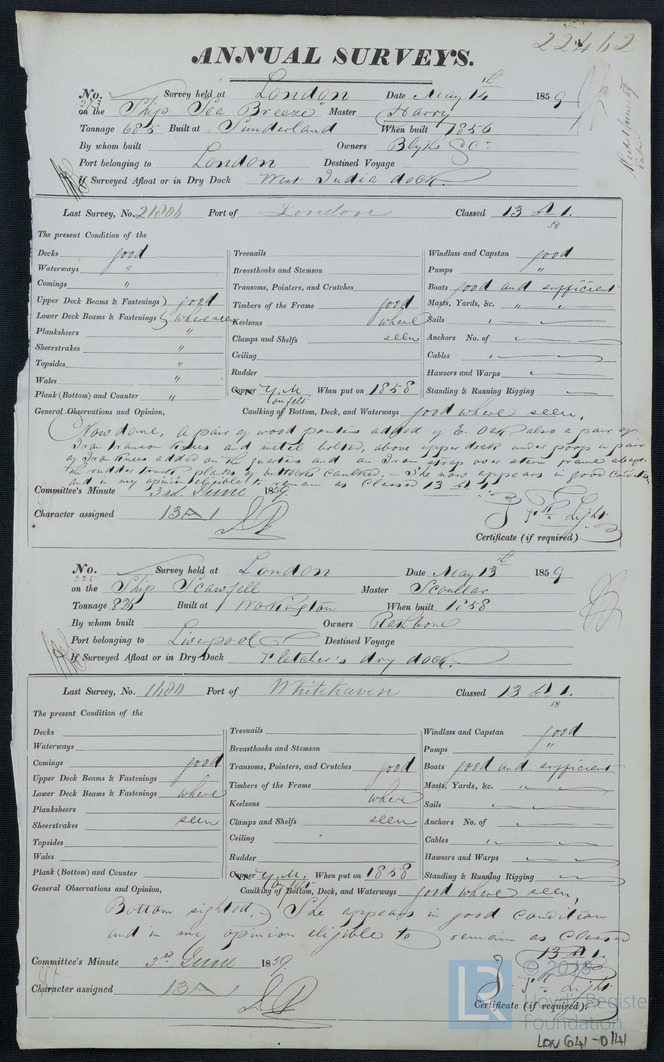 22462
ANNUAL SURVEYS.
No. 223 Survey held at London Date May 14th 1859
on the Ship "Sea Breeze" Master Harry
Tonnage 685 Built at Sunderland When built 1856
By whom built Owners Blyth & Co
Port belonging to London Destined Voyage
If Surveyed Afloat or in Dry Dock West India dock.
Last Survey, No. Port of London Classed 13 A 1.
58
The present Condition of the
Decks good Treenails Windlass and Capstan good
Waterways " Breasthooks and Stemson Pumps "
Comings " Transoms, Pointers, and Crutches Boats good and sufficient
Upper Deck Beams & Fastenings good Timbers of the Frame good Masts, Yards, &c. " "
Lower Deck Beams & Fastenings where seen Keelsons where Sails
Planksheers " Clamps and Shelfs seen Anchors No. of
Sheerstrakes " Ceiling Cables
Topsides " Rudder Hawsers and Warps
Wales " Copper Y.M. on felt When put on 1858 Standing & Running Rigging
Plank (Bottom) and Counter "
General Observations and Opinion, Caulking of Bottom, Deck, and Waterways good where seen,
Now done, a pair of wood pointers added of E. Oak also a pair of
Iron transom knees and metal bolted, above upper deck under poop a pair
of Iron knees added on the and an Iron strap over stern frame
the rudder planks of buttocks caulked, She now appears in good Condition
and in my opinion eligible to remain as Classed 13 A 1
Committee's Minute 3rd June 1859
Character assigned 13 A 1
Light
Certificate (if required)
No. 226 Survey held at London Date May 13th 1859
on the Ship Scawfell Master Scoullar
Tonnage 826 Built at Workington When built 1858
By whom built Owners Rathbone
Port belonging to Liverpool Destined Voyage
If Surveyed Afloat or in Dry Dock Fletcher's dry dock.
Last Survey, No. Port of Whitehaven Classed 13 A 1.
58
The present Condition of the
Decks Treenails Windlass and Capstan good
Waterways Breasthooks and Stemson Pumps "
Comings good Transoms, Pointers, and Crutches good Boats good and sufficient
Upper Deck Beams & Fastenings Timbers of the Frame Masts, Yards, &c.
Lower Deck Beams & Fastenings where Keelsons where Sails
Planksheers Clamps and Shelfs seen Anchors No. of
Sheerstrakes seen Ceiling Cables
Topsides Rudder Hawsers and Warps
Wales Copper Y.M. on felt When put on 1858 Standing & Running Rigging
Plank (Bottom) and Counter
General Observations and Opinion, Caulking of Bottom, Deck, and Waterways good where seen,
Bottom sighted, She appears in good condition
and in my opinion eligible to remain as Classed
13 A 1
Committee's Minute 3rd June 1859.
Character assigned 13 A 1
Light
Certificate (if required).
LR © 2018
Lloyd's Register
Foundation
LON 641-0141